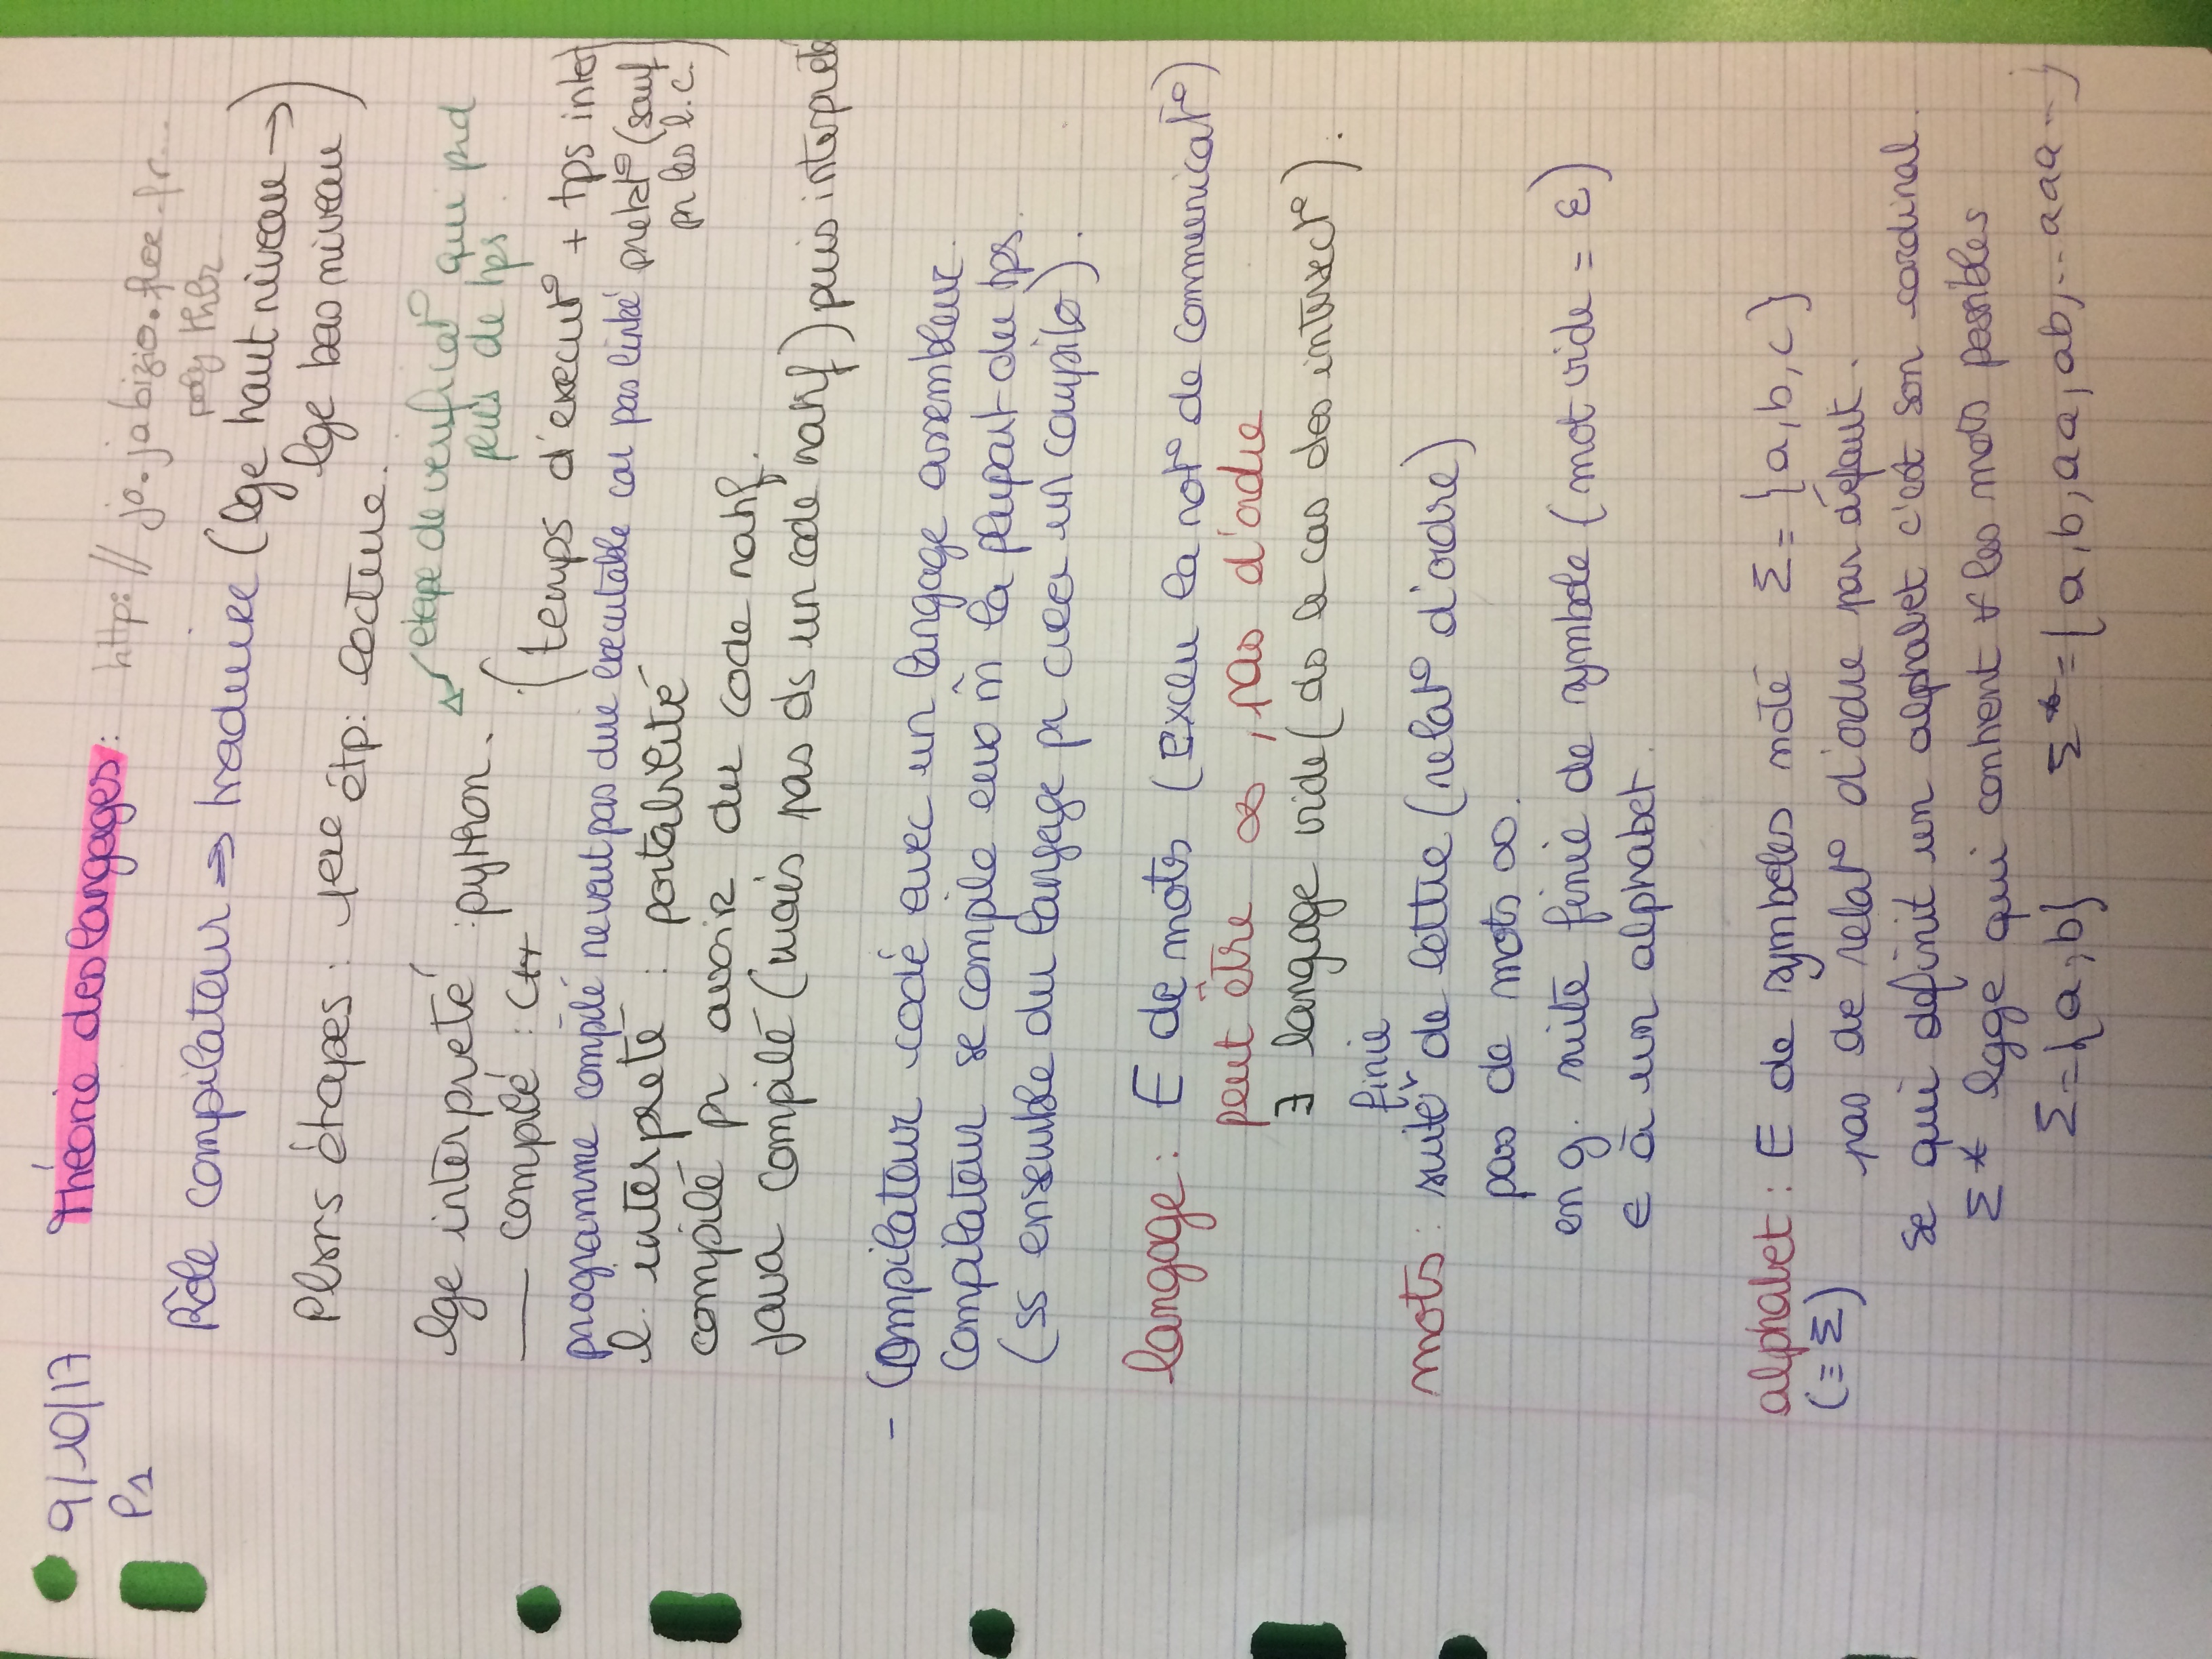 9/10/17 Théorie des langages : http://jo.jabizio.free.fr...
P1 poly thlr
Rôle compilateur ⇒ traduire (lge haut niveau →
lge bas niveau)
Plsrs étapes : 1ere étp: lecture.
lge interpreté : python.
etape de verificat° qui prd
plus de tps.
— compilé : C++
(temps d'execut° + tps inter
pretat° (sauf
pr les l.c.)
programme compilé ne veut pas dire executable car pas linké
l. interpreté : portabilité
compilé pr avoir du code natif.
java compilé (mais pas ds un code natif) puis interpreté
- Compilateur codé avec un langage assembleur.
Compilateur se compile eux m̂ la plupart du tps.
(ss ensemble du langage pr creer un compilo).
langage : E de mots (exclu la not° de communicat°)
peut être ∞, pas d'ordre
∃ langage vide (ds le cas des intersect°).
finie
mots : suite de lettre (relat° d'ordre)
pas de mots ∞.
en g. suite finie de symbole (mot vide = ε)
∈ à un alphabet.
alphabet : E de symboles noté Σ = {a, b, c}
(≡ Σ)
pas de relat° d'ordre par défaut.
se qui definit un alphabet c'est son cardinal.
Σ* lgge qui contient ∀ les mots possibles
Σ = {a, b} Σ* = {a, b, aa, ab, .. aaa ...}